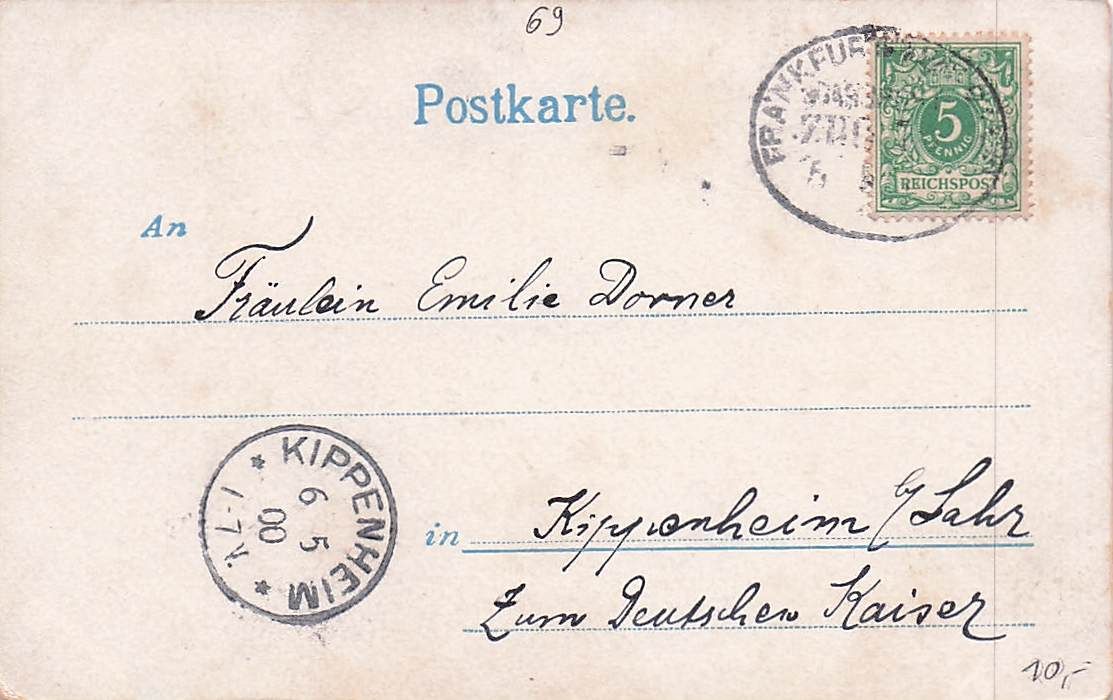 69
Postkarte.
5
PFENNIG
REICHSPOST
An
Fräulein Emilie Dorner
KIPPENHEIM
6 5
00
in Kippenheim b/ Lahr
Zum Deutschen Kaiser
10,-